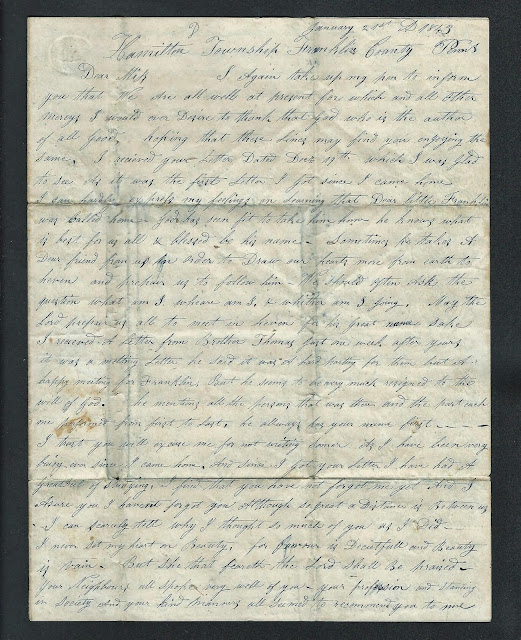 January 21st D 1843
Hamilton Township Franklin County Penn
Dear Miss I Again take up my pen to inform
you that We are all well at present for which and all other
mercys I would ever Desire to thank that God who is the author
of all Good, hopeing that these lines may find you enjoying the
same. I recieved your Letter Dated Dec which I was glad
to see As it was the first Letter I got since I came home
I can hardly express my feelings on learning that Dear little Franklin
was called home - God has seen fit to take him home he knows what
is best for us all & blessed be his name - Sometimes he takes A
Dear friend from us in order to Draw our hearts more from earth to
heven and prepare us to follow him - We should often Ask the
question what am I, wheare am I, & whither am I going, May the
Lord prepare us all to meet in heven for his great name sake
I recieved A Letter from Brother Thomas just one week after yours
it was a melting Letter he said it was A hard parting for them but A
happy meeting for Franklin, But he seems to be very much resigned to the
will of God. he mentions all the persons that was there and the part each
one performed from first to last, he allways has your name first
I trust you will excuse me for not writing sooner As I have been very
buisy ever since I came home. And since I got your Letter I have had A
great deal of studying, I find that you have not forgot me yet And I
Asure you I havent forgot you Although so great a Distance is between us
I can scarcely tell why I thought so much of you As I Did -
I never set my heart on beauty, for favour is Deceitfull and beauty
is vain - But She that feareth the Lord Shall Be praised -
your Neighbours all spoke very well of you - your profession and standing
in society And your kind manners all Seemed to recommend you to me